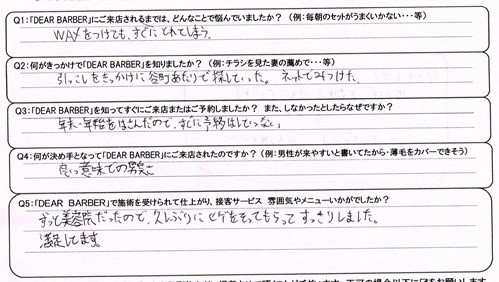 Q1:「DEAR BARBER」にご来店されるまでは、どんなことで悩んでいましたか？（例：毎朝のセットがうまくいかない・・・等）
WAXをつけても、すぐにとれてしまう。
Q2：何がきっかけで「DEAR BARBER」を知りましたか？（例：チラシを見た妻の薦めで・・・等）
引っこしをきっかけに谷町あたりで探していた。ネットでみつけた。
Q3：「DEAR BARBER」を知ってすぐにご来店またはご予約しましたか？ また、しなかったとしたらなぜですか？
年末・年始をはさんだので、すぐに予約はしていない。
Q4：何が決め手となって「DEAR BARBER」にご来店されたのですか？（例：男性が来やすいと書いてたから・薄毛をカバーできそう）
良い意味での男臭さ
Q5：「DEAR BARBER」で施術を受けられて仕上がり、接客サービス 雰囲気やメニューいかがでしたか？
ずっと美容院だったので、久しぶりにヒゲをそってもらってすっきりしました。
満足してます。